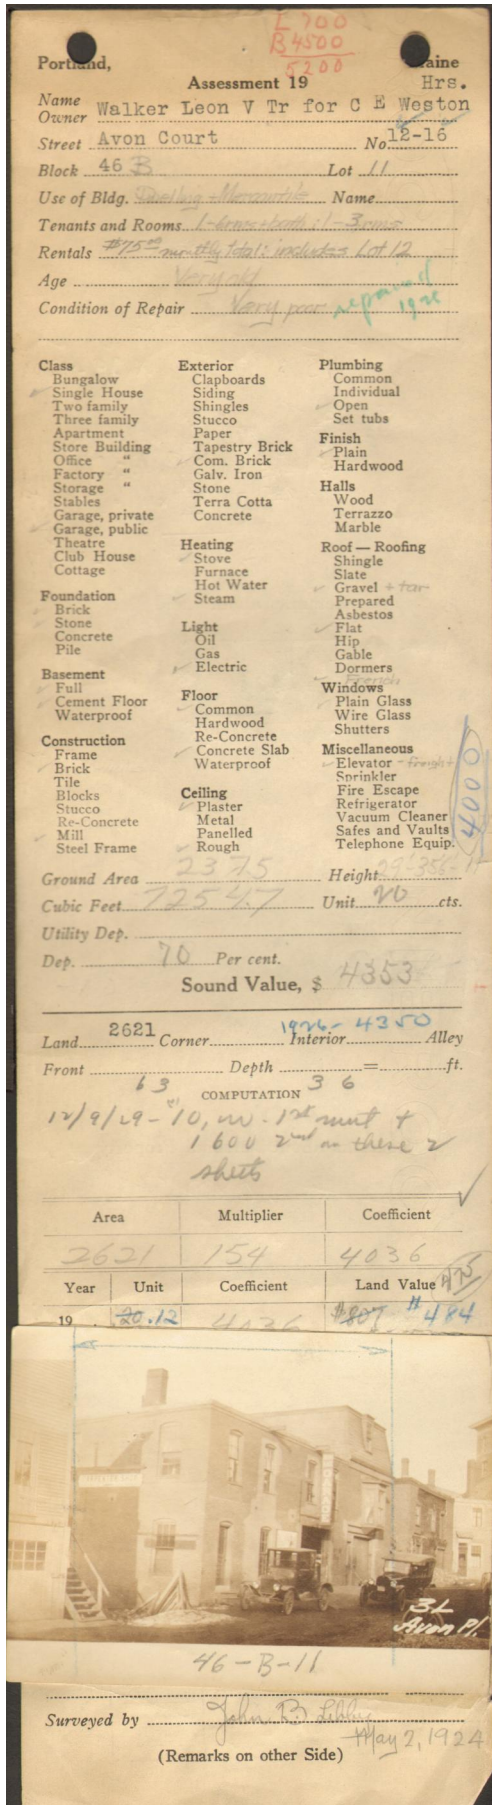 L 700
B 4500
5200
Portland, Maine
Assessment 19 Hrs.
Name
Owner Walker Leon V Tr for C E Weston
Street Avon Court No 12-16
Block 46 B Lot 11
Use of Bldg. Dwelling - Mercantile Name
Tenants and Rooms 1-6rms + bath; 1-3 rms
Rentals $75.00 monthly total: includes Lot 12
Age Very old
Condition of Repair Very poor repaired
Class
Bungalow
Single House
Two family
Three family
Apartment
Store Building
Office "
Factory "
Storage "
Stables
Garage, private
Garage, public
Theatre
Club House
Cottage
Foundation
Brick
Stone
Concrete
Pile
Basement
Full
Cement Floor
Waterproof
Construction
Frame
Brick
Tile
Blocks
Stucco
Re-Concrete
Mill
Steel Frame
Exterior
Clapboards
Siding
Shingles
Stucco
Paper
Tapestry Brick
Com. Brick
Galv. Iron
Stone
Terra Cotta
Concrete
Heating
Stove
Furnace
Hot Water
Steam
Light
Oil
Gas
Electric
Floor
Common
Hardwood
Re-Concrete
Concrete Slab
Waterproof
Ceiling
Plaster
Metal
Panelled
Rough
Plumbing
Common
Individual
Open
Set tubs
Finish
Plain
Hardwood
Halls
Wood
Terrazzo
Marble
Roof — Roofing
Shingle
Slate
Gravel + tar
Prepared
Asbestos
Flat
Hip
Gable
Dormers
French
Windows
Plain Glass
Wire Glass
Shutters
Miscellaneous
Elevator - freight
Sprinkler
Fire Escape
Refrigerator
Vacuum Cleaner
Safes and Vaults
Telephone Equip.
4000
Ground Area 2375 Height
Cubic Feet 72547 Unit 20 cts.
Utility Dep.
Dep. 70 Per cent.
Sound Value, $ 4353
1926 - 4350
Land 2621 Corner Interior Alley
Front Depth = ft.
63 36
COMPUTATION
12/9/29 - 10,000 - 1st mort +
1600 2nd on these 2
sheets
Area Multiplier Coefficient
2621 154 4036
Year Unit Coefficient Land Value 475
19 20 .12 4036 $807 $484
31
Avon Pl.
46-B-11
Surveyed by John B. Libby
May 2, 1924
(Remarks on other Side)